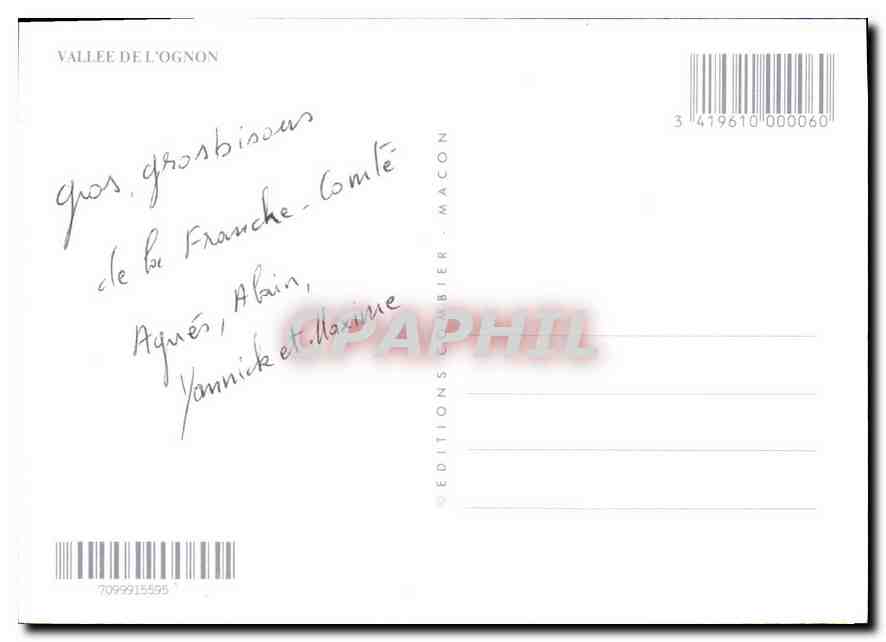 VALLEE DE L'OGNON
3 419610 000060
gros, grosbisous
de la Franche-Comté
Agnés, Alain,
Yannick et Maxime
©EDITIONS COMBIER - MACON
CPAPHIL
7099915595